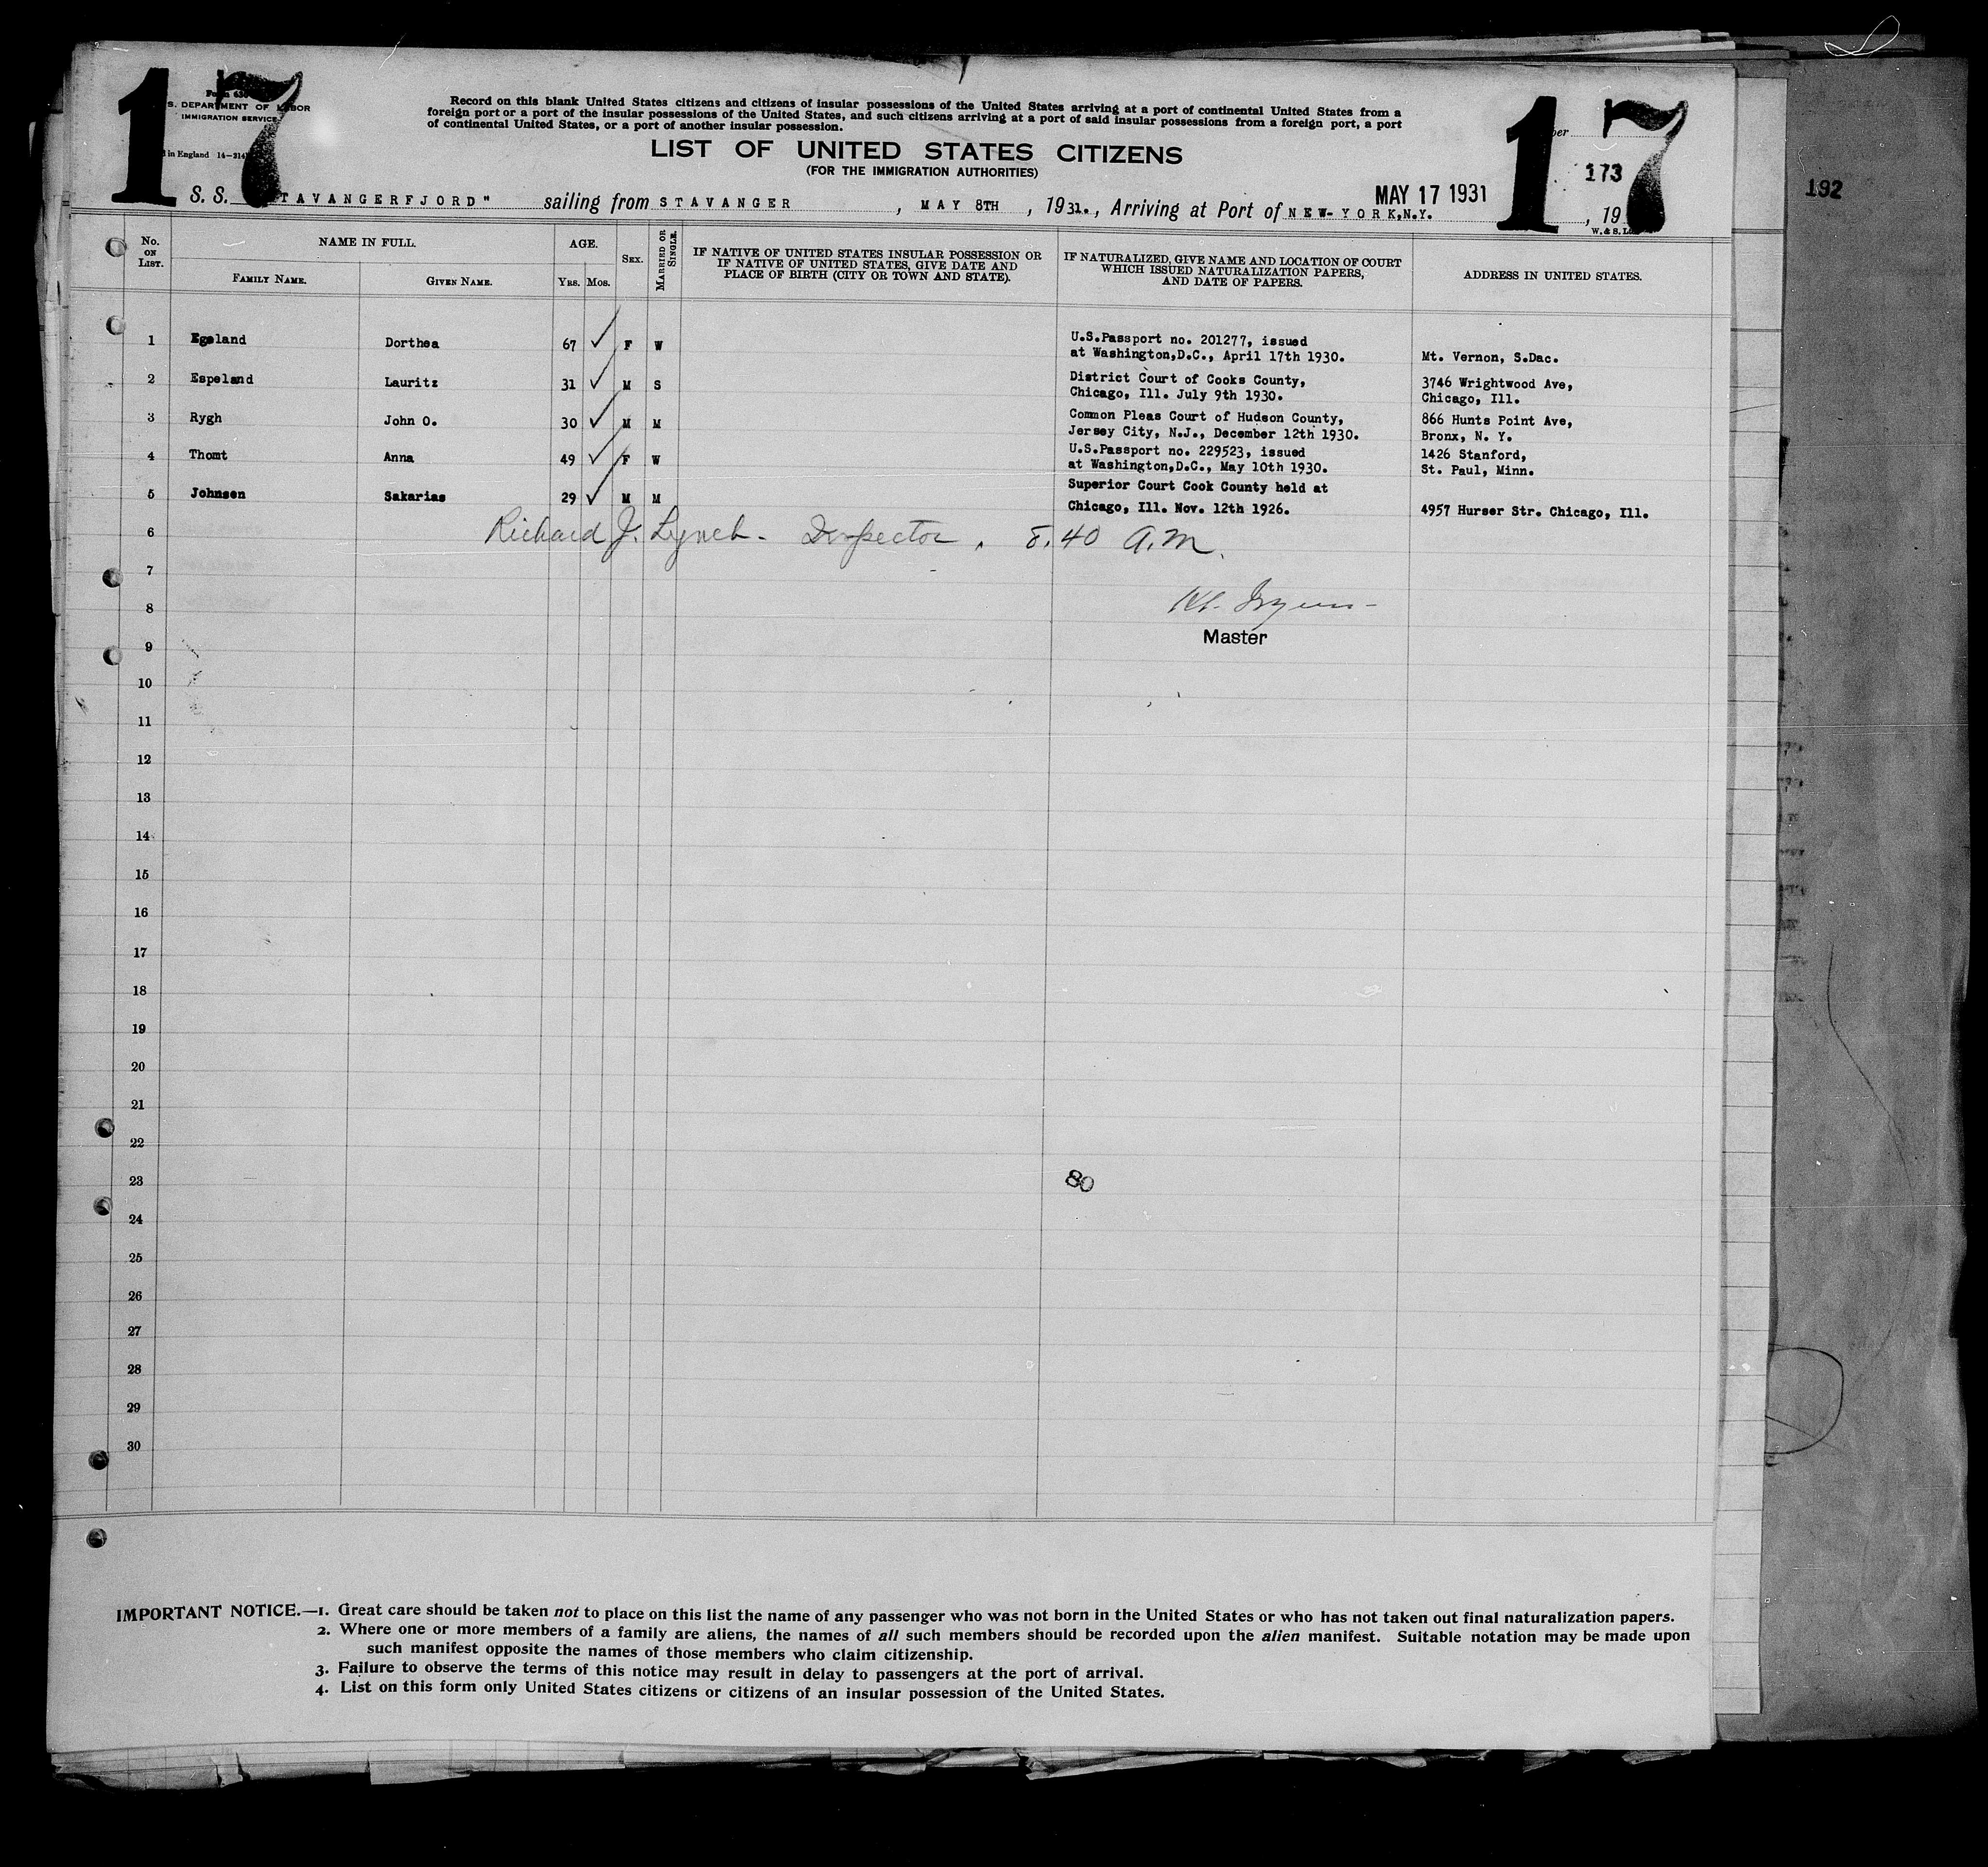 17
17
S. DEPARTMENT OF LABOR
IMMIGRATION SERVICE
in England 14-214
Record on this blank United States citizens and citizens of insular possessions of the United States arriving at a port of continental United States from a
foreign port or a port of the insular possessions of the United States, and such citizens arriving at a port of said insular possessions from a foreign port, a port
of continental United States, or a port of another insular possession.
LIST OF UNITED STATES CITIZENS
(FOR THE IMMIGRATION AUTHORITIES)
173
192
S. S. TAVANGERFJORD" sailing from STAVANGER, MAY 8TH, 1931., Arriving at Port of NEW-YORK, N.Y. MAY 17 1931, 19
No. ON LIST. NAME IN FULL. AGE. SEX. MARRIED OR SINGLE. IF NATIVE OF UNITED STATES INSULAR POSSESSION OR IF NATIVE OF UNITED STATES, GIVE DATE AND PLACE OF BIRTH (CITY OR TOWN AND STATE). IF NATURALIZED, GIVE NAME AND LOCATION OF COURT WHICH ISSUED NATURALIZATION PAPERS, AND DATE OF PAPERS. ADDRESS IN UNITED STATES.
FAMILY NAME. GIVEN NAME. YRS. MOS.
1 Egeland Dorthea 67 F W U.S.Passport no. 201277, issued
at Washington,D.C., April 17th 1930. Mt. Vernon, S.Dac.
2 Espeland Lauritz 31 M S District Court of Cooks County, 3746 Wrightwood Ave,
Chicago, Ill. July 9th 1930. Chicago, Ill.
3 Rygh John O. 30 M M Common Pleas Court of Hudson County, 866 Hunts Point Ave,
Jersey City, N.J., December 12th 1930. Bronx, N. Y.
4 Thomt Anna 49 F W U.S.Passport no. 229523, issued 1426 Stanford,
at Washington,D.C., May 10th 1930. St. Paul, Minn.
5 Johnsen Sakarias 29 M M Superior Court Cook County held at
Chicago, Ill. Nov. 12th 1926. 4957 Hurser Str. Chicago, Ill.
6 Richard J. Lynch - Inspector. 8.40 A.M.
7
8
9 Master
10
11
12
13
14
15
16
17
18
19
20
21
22
23 80
24
25
26
27
28
29
30
IMPORTANT NOTICE.—1. Great care should be taken not to place on this list the name of any passenger who was not born in the United States or who has not taken out final naturalization papers.
2. Where one or more members of a family are aliens, the names of all such members should be recorded upon the alien manifest. Suitable notation may be made upon
such manifest opposite the names of those members who claim citizenship.
3. Failure to observe the terms of this notice may result in delay to passengers at the port of arrival.
4. List on this form only United States citizens or citizens of an insular possession of the United States.